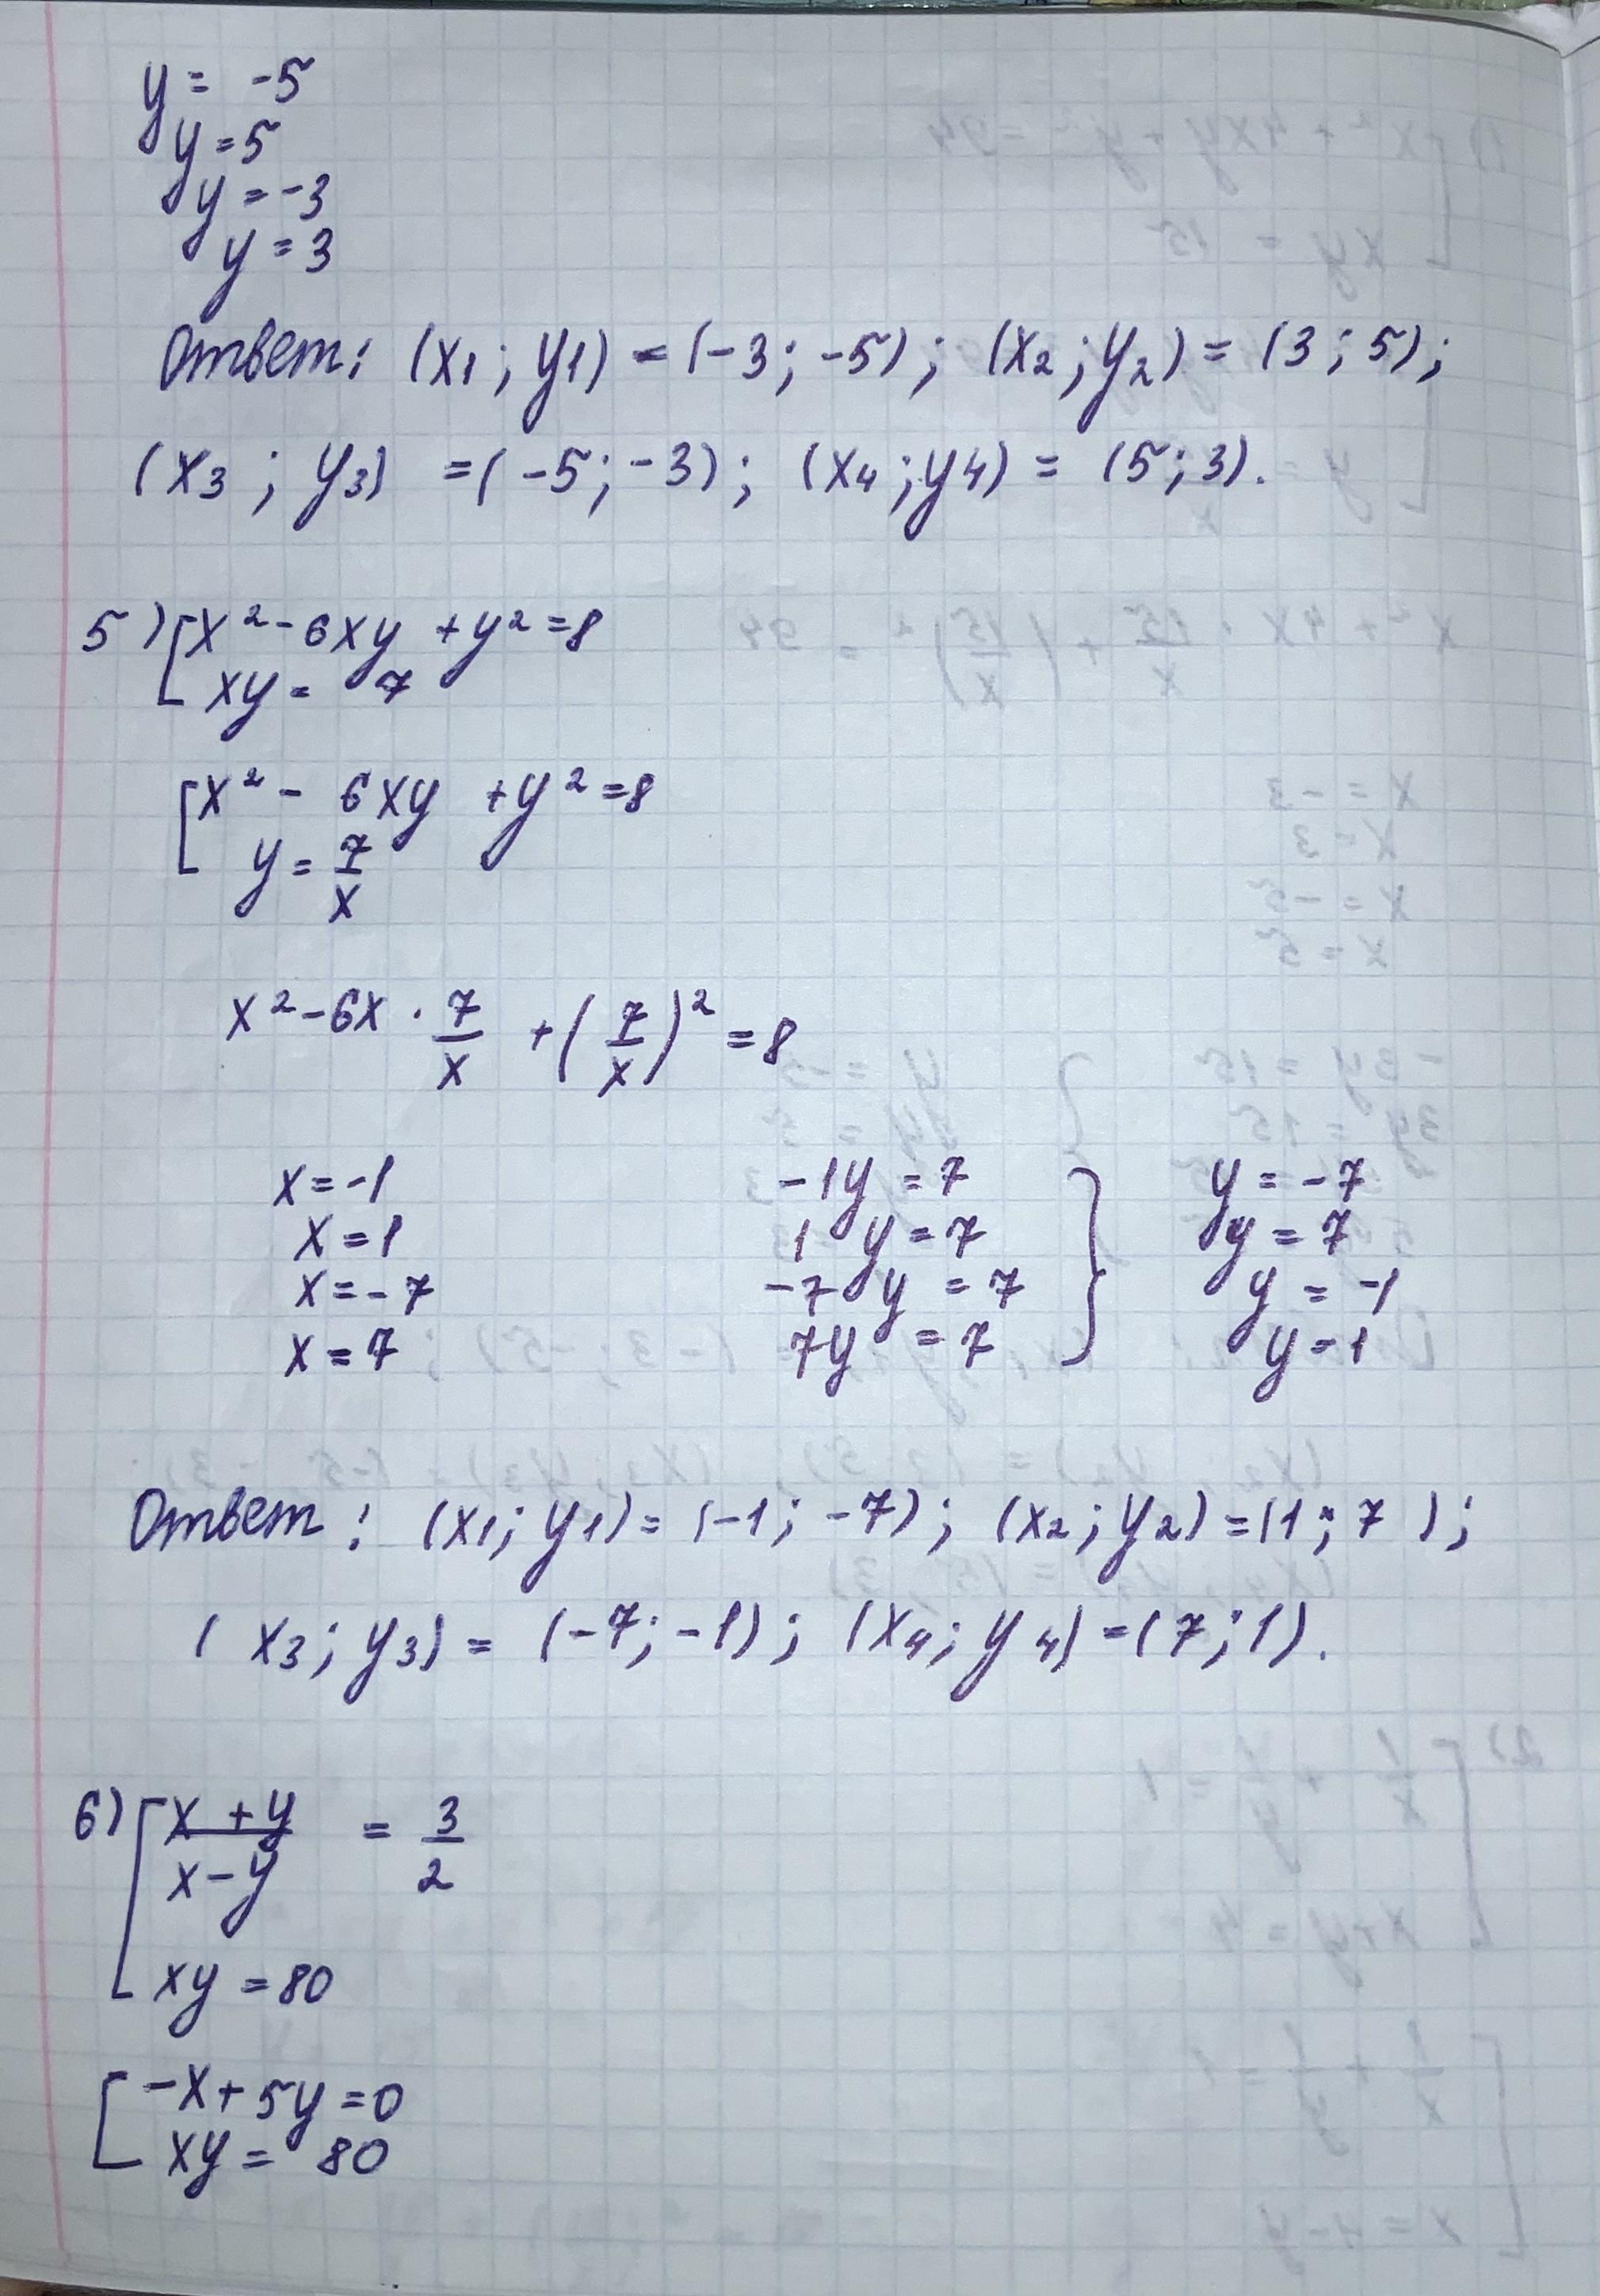 y = -5
y = 5
y = -3
y = 3
Ответ: (x1; y1) = (-3; -5); (x2; y2) = (3; 5);
(x3; y3) = (-5; -3); (x4; y4) = (5; 3).
5) [x² - 6xy + y² = 8
xy = 7
[x² - 6xy + y² = 8
y = 7/x
x² - 6x · 7/x + (7/x)² = 8
x = -1 -1y = 7 } y = -7
x = 1 1y = 7 y = 7
x = -7 -7y = 7 y = -1
x = 7 7y = 7 y = 1
Ответ: (x1; y1) = (-1; -7); (x2; y2) = (1; 7);
(x3; y3) = (-7; -1); (x4; y4) = (7; 1).
6) [x + y / x - y = 3/2
xy = 80
[-x + 5y = 0
xy = 80